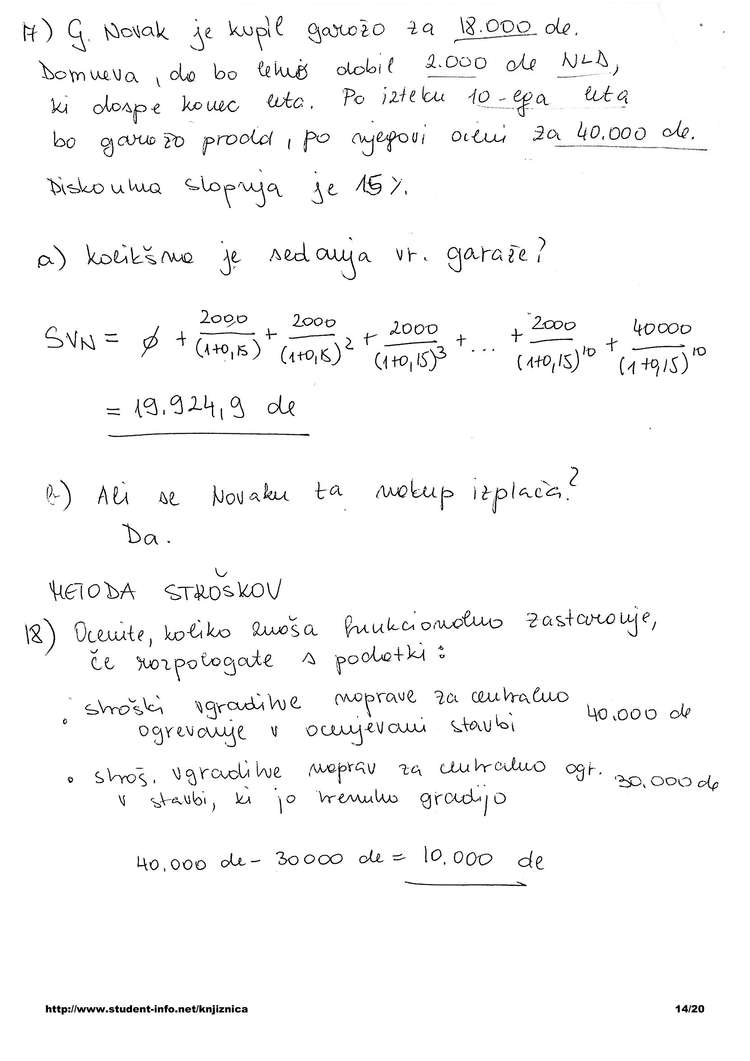 17) G. Novak je kupil garažo za 18.000 de.
Domneva, da bo letno dobil 2.000 de NLD,
ki dospe konec leta. Po izteku 10-ega leta
bo garažo prodal, po njegovi oceni za 40.000 de.
Diskontna stopnja je 15%.
a) kolikšna je sedanja vr. garaže?
SVN = ∅ + 2000/(1+0,15) + 2000/(1+0,15)² + 2000/(1+0,15)³ + ... + 2000/(1+0,15)¹⁰ + 40000/(1+0,15)¹⁰
= 19.924,9 de
b) Ali se Novaku ta nakup izplača?
Da.
METODA STROŠKOV
18) Ocenite, koliko znaša funkcionalno zastaranje,
če razpolagate s podatki:
• stroški vgraditve naprave za centralno
ogrevanje v ocenjevani stavbi 40.000 de
• stroš. vgraditve naprav za centralno ogr. 30.000 de
v stavbi, ki jo trenutno gradijo
40.000 de - 30000 de = 10.000 de
http://www.student-info.net/knjiznica 14/20